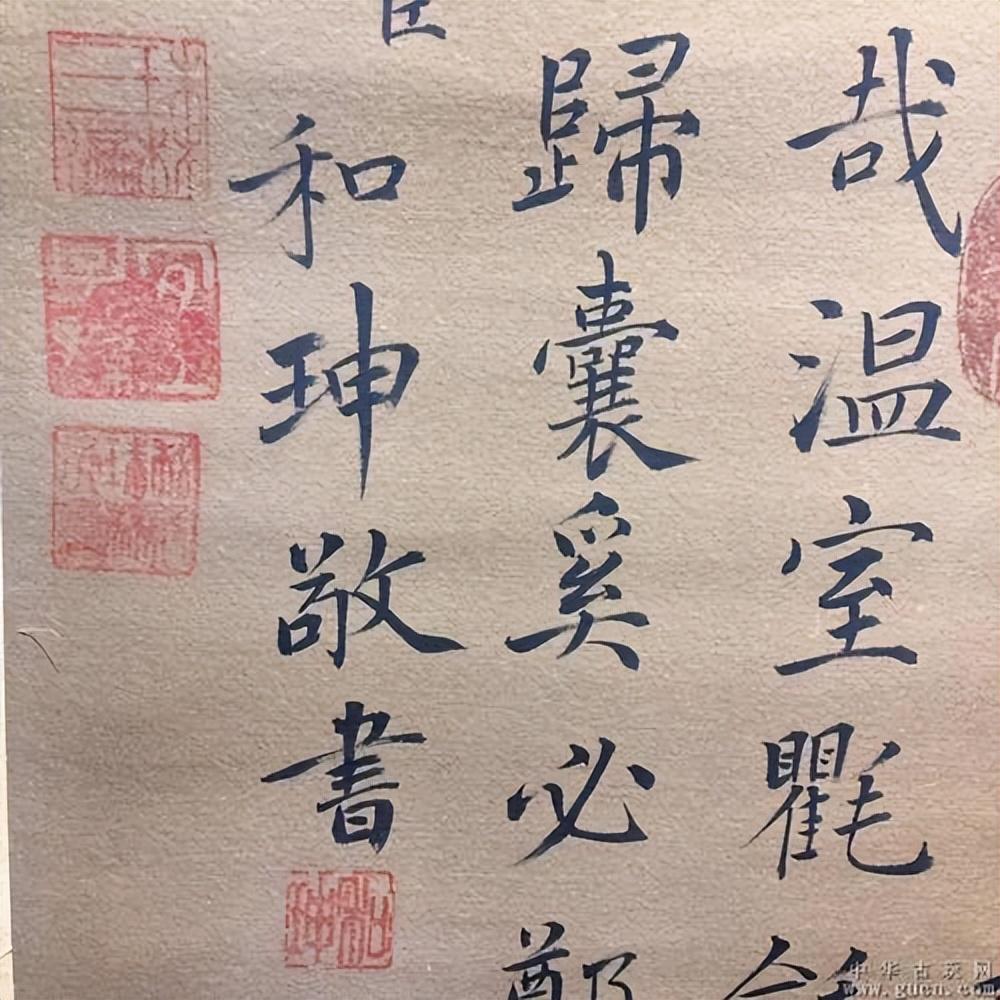 哉溫室氍
歸囊奚必鄭
臣
和珅敬書
和珅
中华古玩网
www.gucn.com